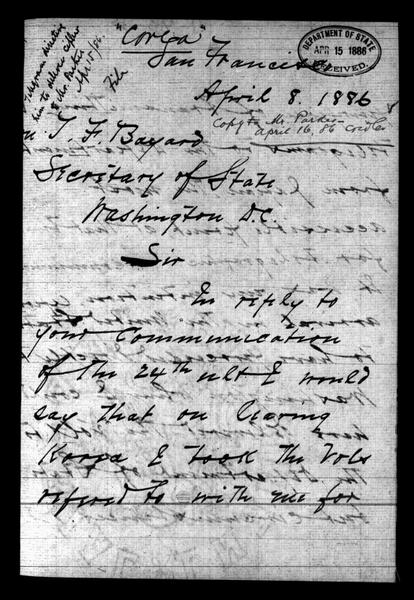 "Corea"
San Francisco
DEPARTMENT OF STATE
APR 15 1886
RECEIVED.
Telegram directing
him to deliver cipher
to Mr. Parker
Apr 15/86.
File
April 8. 1886
Copy to Mr Parker
April 16, 86
T. F. Bayard
Secretary of State
Washington D.C.
Sir
In reply to
your Communication
of the 24th ult I would
say that on leaving
Korea I took the Vols
refered to with me for